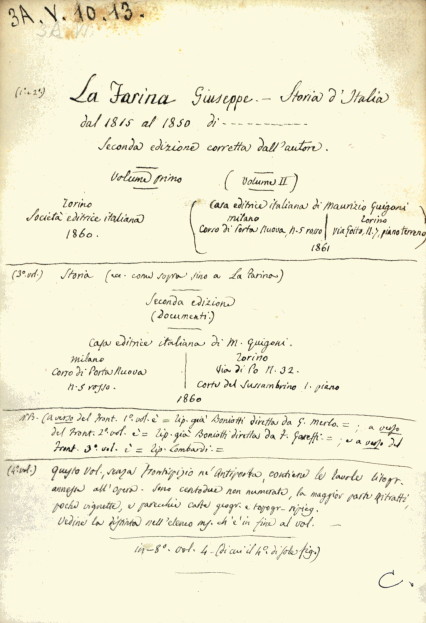 3A. V. 10. 13.
(1º-2º) La Farina Giuseppe. — Storia d'Italia
dal 1815 al 1850 di - - - - - - - - -
Seconda edizione corretta dall'autore.
Volume primo (Volume II)
Torino
Società editrice italiana
1860.
Casa editrice italiana di Maurizio Guigoni
milano
Corso di Porta Nuova, n. 5 rosso
Torino
via Goito, N. 7, piano terreno
1861
(3º vol.) Storia (ec. come sopra sino a La Farina)
Seconda edizione
(Documenti)
Casa editrice italiana di M. Guigoni.
milano
Corso di Porta Nuova
n. 5 rosso.
Torino
Via di Po N. 32.
Corte del Sussambrino 1. piano
1860
NB. (a verso del Front. 1º vol. è = Tip. già Boniotti diretta da G. Merlo = ; a verso
del Front. 2º vol. è = Tip. già Boniotti diretta da F. Gareffi = ; e a verso del
Front. 3º vol. è = Tip. Lombardi =
(4º vol.) questo vol., senza Frontispizio nè Antiporta, contiene le tavole litogr.
annesse all'opera. Sono centodue non numerate, la maggior parte Ritratti,
poche vignette, e parecchie carte geogr. e topogr. ripieg.
Vedine la distinta nell'elenco ms. ch'è in fine al vol. —
in-8º. vol. 4. (di cui il 4º. di sole fig.)
C.